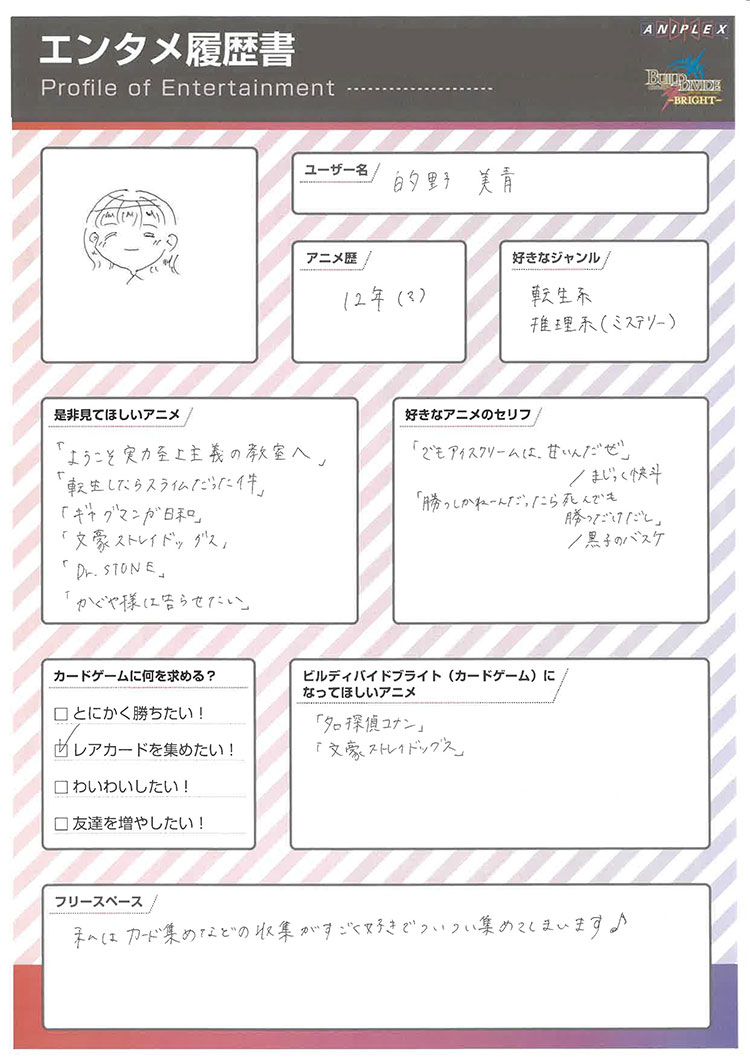 エンタメ履歴書
Profile of Entertainment
ANIPLEX
BUILD DIVIDE
-BRIGHT-
ユーザー名
白夕野 美青
アニメ歴
12年(3)
好きなジャンル
転生系
推理系(ミステリー)
是非見てほしいアニメ
「ようこそ実力至上主義の教室へ」
「転生したらスライムだった件」
「ギャグマンガ日和」
「文豪ストレイドッグス」
「Dr.STONE」
「かぐや様は告らせたい」
好きなアニメのセリフ
「でもアイスクリームは、甘いんだぜ」
/まじっく快斗
「勝つしかねーんだったら死んでも
勝つだけだし」
/黒子のバスケ
カードゲームに何を求める?
□ とにかく勝ちたい!
☑ レアカードを集めたい!
□ わいわいしたい!
□ 友達を増やしたい!
ビルディバイドブライト(カードゲーム)に
なってほしいアニメ
「名探偵コナン」
「文豪ストレイドッグス」
フリースペース
私はカード集めなどの収集がすごく好きでついつい集めてしまいます♪